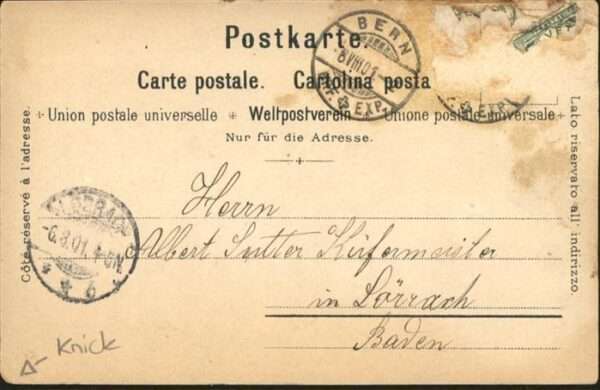 Postkarte.
Carte postale. Cartolina posta
Union postale universelle Weltpostverein Unione postale universale
Nur für die Adresse.
Côté réservé à l'adresse.
Lato riservato all' indirizzo.
BERN
EXP.
EXP.
LÖRRACH
6.8.01.4-5N.
6
Herrn
Albert Sutter Küfermeister
in Lörrach
Baden
Knick